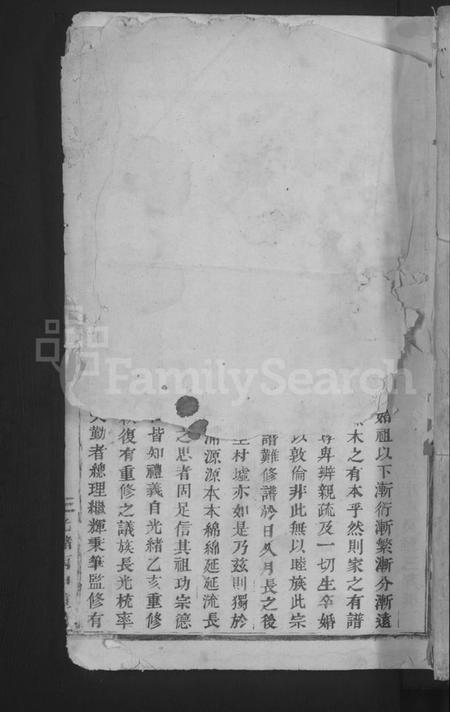 始祖以下漸衍漸繁漸分漸遠
木之有本乎然則家之有譜
尊卑辨親疏及一切生卒婚
以敦倫非此無以睦族此宗
譜難修譜於日久月長之後
村墟亦如是乃茲則獨於
源源本本綿綿延延流長
之思者固足信其祖功宗德
皆知禮義自光緒乙亥重修
復有重修之議族長光梳率
勤者總理繼輝秉筆監修有
FamilySearch